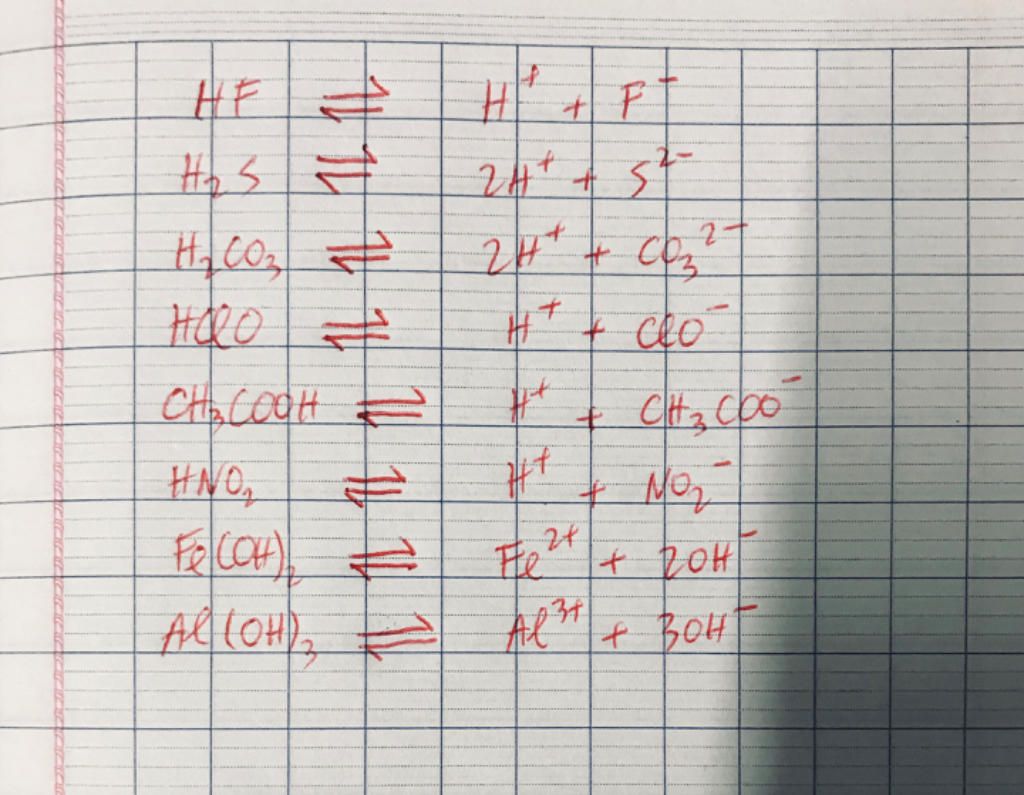 HF ⇌ H⁺ + F⁻
H₂S ⇌ 2H⁺ + S²⁻
H₂CO₃ ⇌ 2H⁺ + CO₃²⁻
HClO ⇌ H⁺ + ClO⁻
CH₃COOH ⇌ H⁺ + CH₃COO⁻
HNO₂ ⇌ H⁺ + NO₂⁻
Fe(OH)₂ ⇌ Fe²⁺ + 2OH⁻
Al(OH)₃ ⇌ Al³⁺ + 3OH⁻